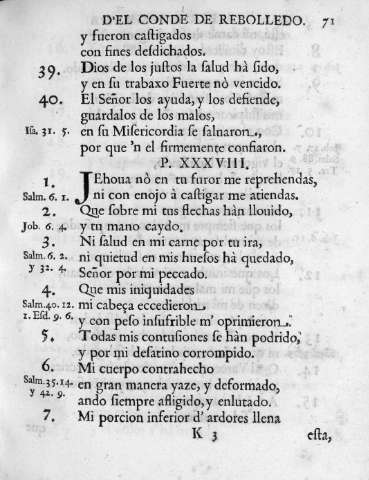 D'EL CONDE DE REBOLLEDO. 71
y fueron caſtigados
con fines deſdichados.
39. Dios de los juſtos la ſalud hà ſido,
y en ſu trabaxo Fuerte nò vencido.
40. El Señor los ayuda, y los defiende,
guárdalos de los malos,
Iſa. 31. 5. en ſu Miſericordia ſe ſaluaron,
por que 'n el firmemente confiaron.
P. XXXVIII.
1. JEhoua nò en tu furor me reprehendas,
Salm. 6. 1. ni con enojo à caſtigar me atiendas.
2. Que ſobre mi tus flechas hàn llouido,
Job. 6. 4. y tu mano caydo.
3. Ni ſalud en mi carne por tu ira,
Salm. 6. 2. ni quietud en mis hueſos hà quedado,
y 32. 4. Señor por mi peccado.
4. Que mis iniquidades
Salm. 40. 12. mi cabeça eccedieron
1. Eſd. 9. 6. y con peſo inſufrible m' oprimieron
5. Todas mis contuſiones ſe hàn podrido,
y por mi deſatino corrompido.
6. Mi cuerpo contrahecho
Salm. 35. 14. en gran manera yaze, y deformado,
y 42. 9. ando ſiempre afligido, y enlutado.
7. Mi porcion inferior d' ardores llena
K 3 eſta,